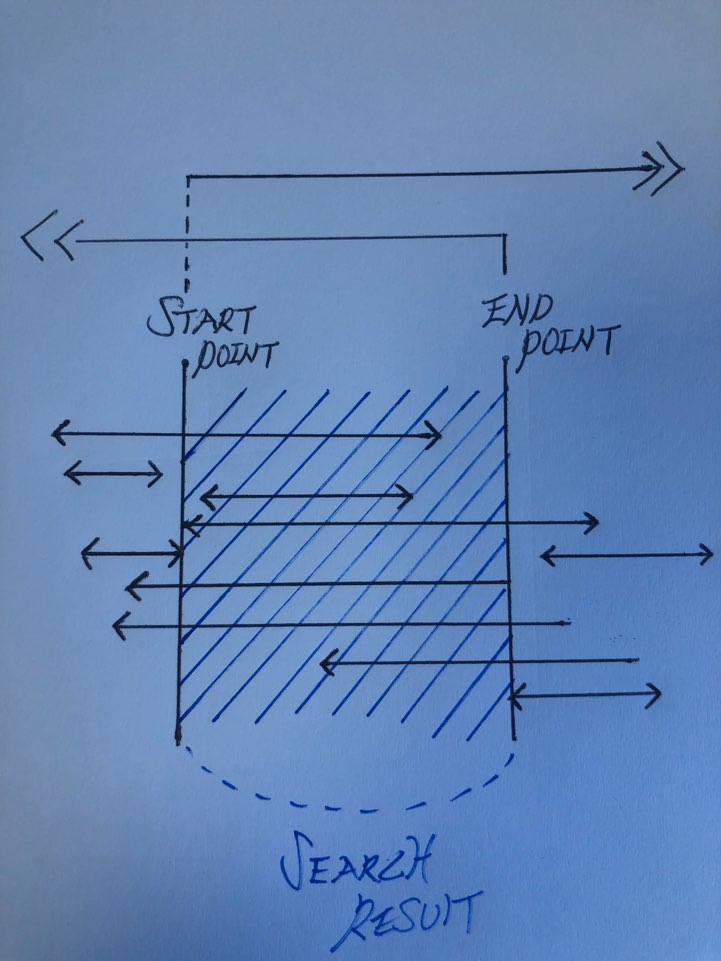 START
POINT
END
POINT
SEARCH
RESUIT